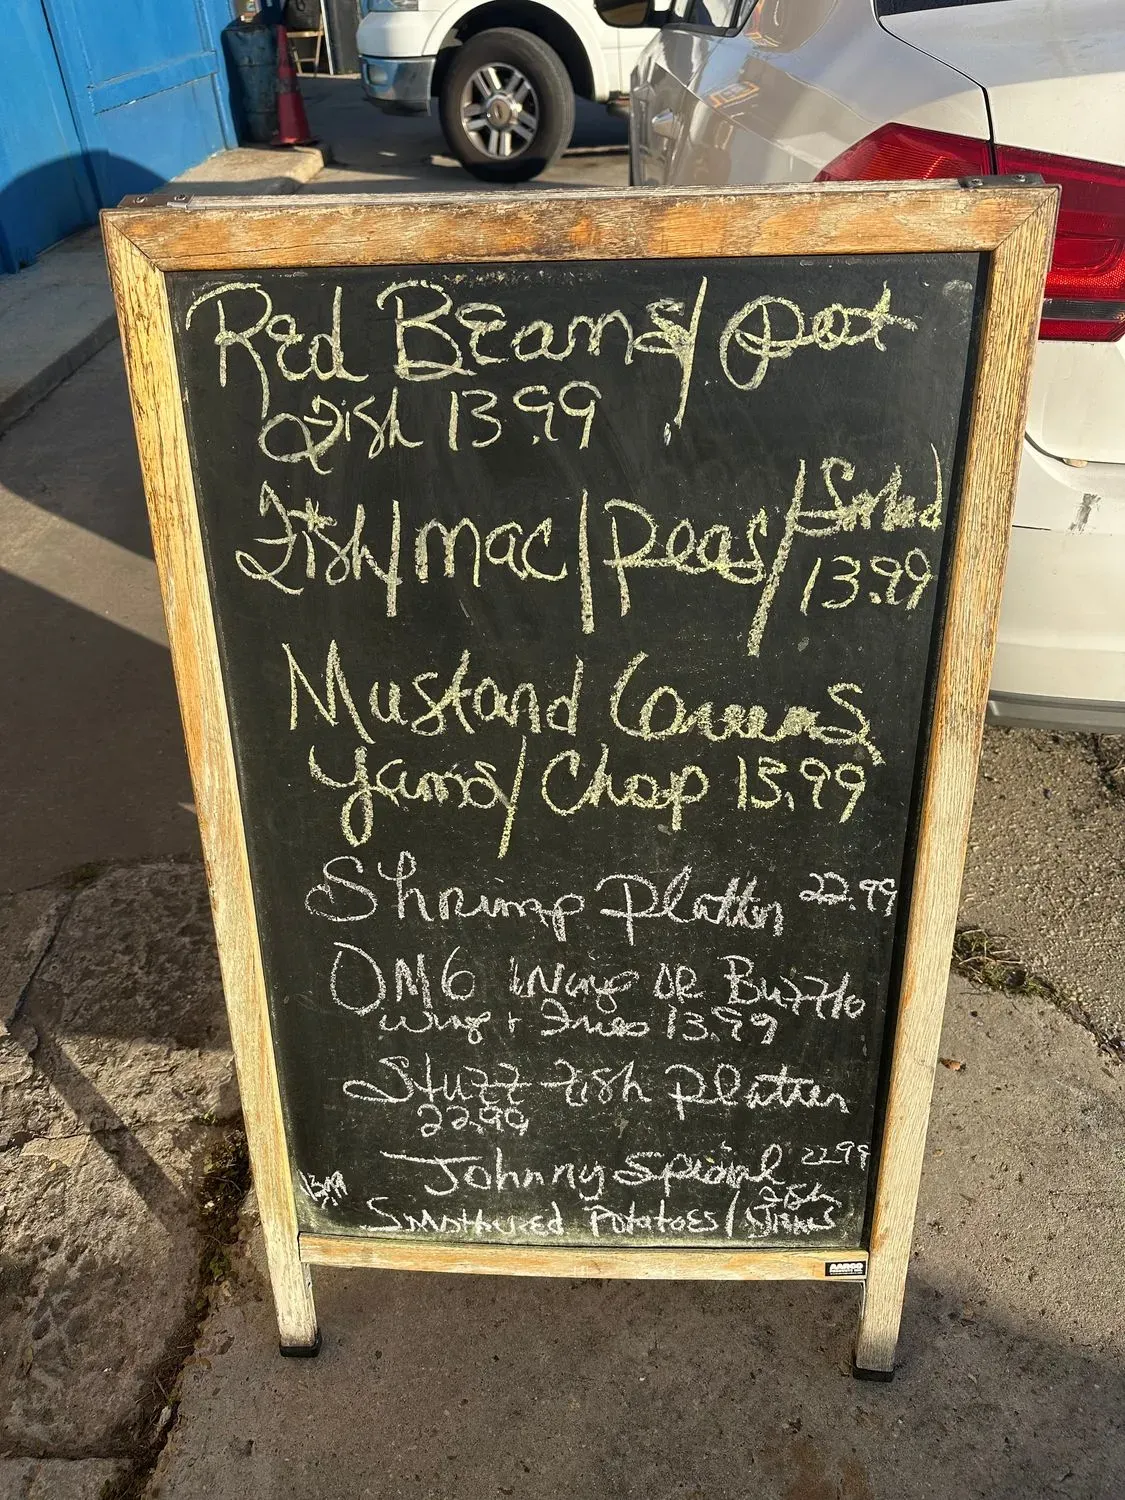 Red Beans/ pot
Fish 13.99
Fish/mac/peas/Salad
13.99
Mustand Greens
Yams/Chop 13.99
Shrimp platter 22.99
OMG Wings OR Buzzlo
Wing + Fries 13.99
Stuzz Fish platter
22.99
Johnny Special 22.99
13.99 Smothered Potatoes/
AARCO